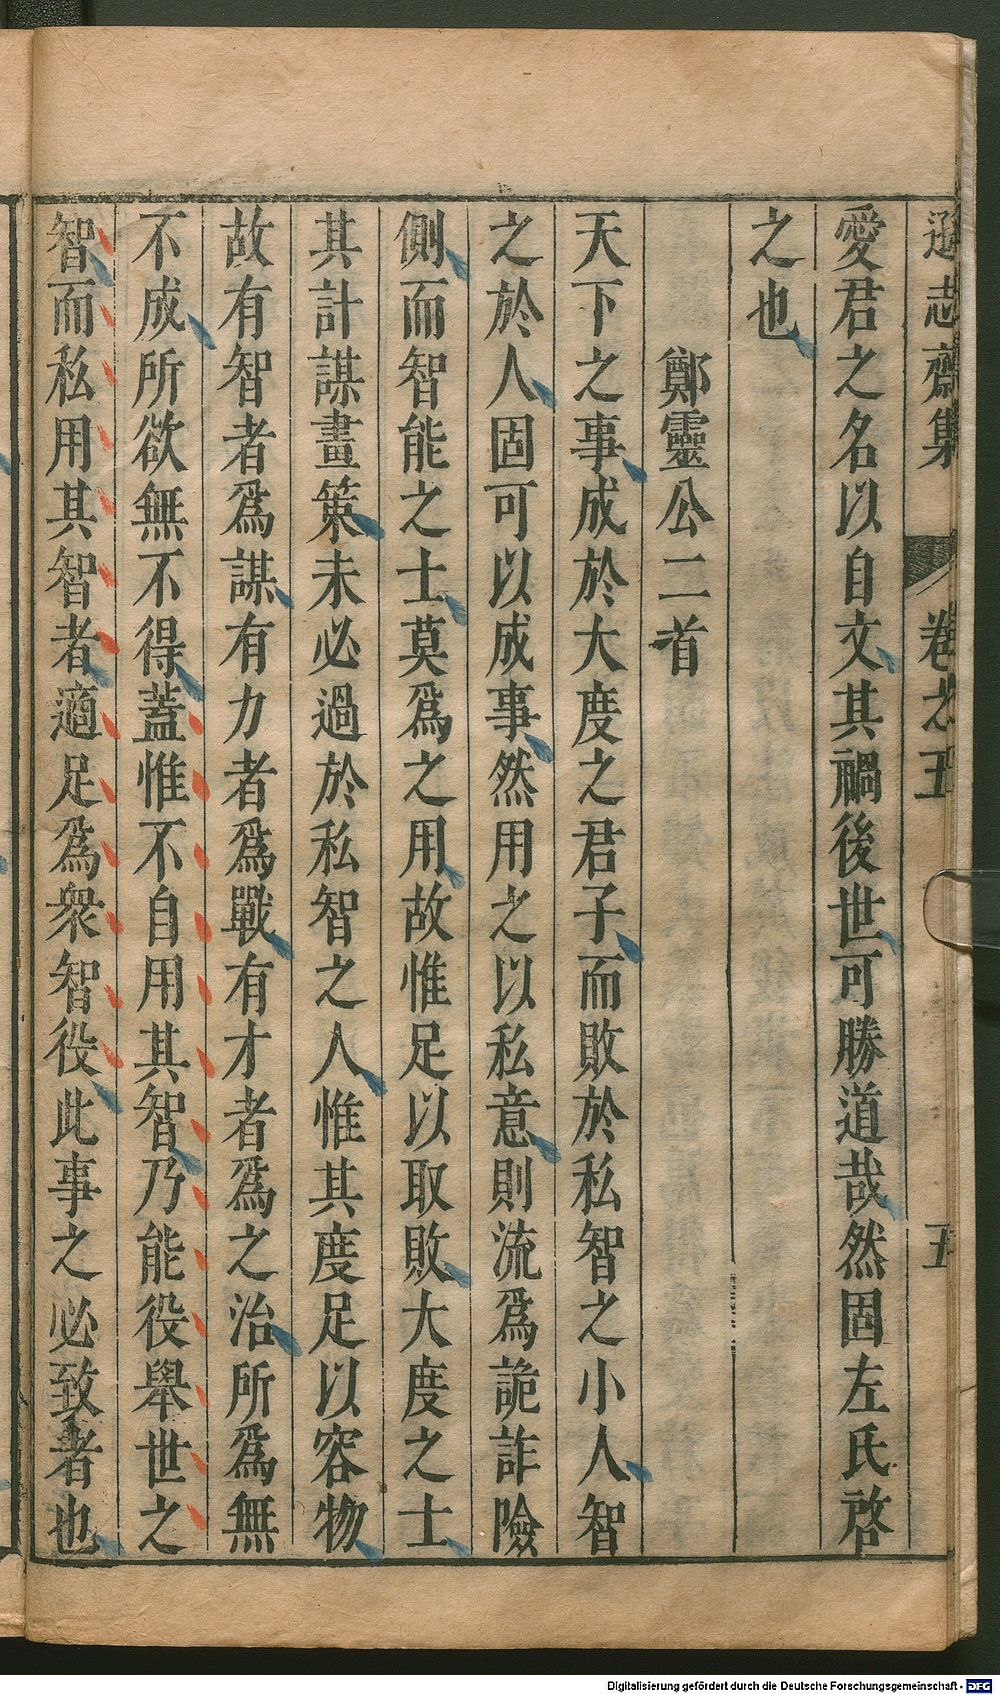 遜志齋集 卷之五 五
愛君之名以自文其禍後世可勝道哉然固左氏啓
之也
鄭靈公二首
天下之事成於大度之君子而敗於私智之小人智
之於人固可以成事然用之以私意則流爲詭詐險
側而智能之士莫爲之用故惟足以取敗大度之士
其計謀畫策未必過於私智之人惟其度足以容物
故有智者爲謀有力者爲戰有才者爲之治所爲無
不成所欲無不得蓋惟不自用其智乃能役舉世之
智而私用其智者適足爲衆智役此事之必致者也
Digitalisierung gefördert durch die Deutsche Forschungsgemeinschaft - DFG